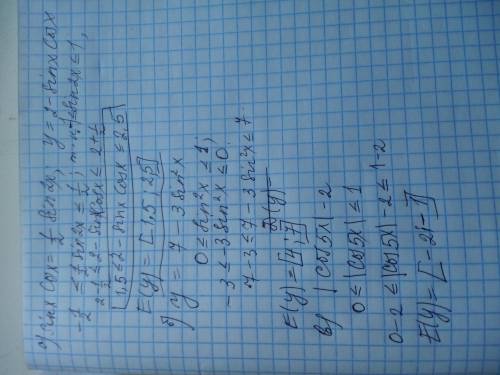 а) sinx cosx = 1/2 sin2x; y = 2 - sinx cosx
-1/2 ≤ 1/2 sin2x ≤ 1/2; -1 ≤ sin2x ≤ 1,
2 - 1/2 ≤ 2 - sinx cosx ≤ 2 + 1/2
1,5 ≤ 2 - sinx cosx ≤ 2,5
E(y) = [1,5; 2,5]
б) y = 7 - 3sin²x
0 ≤ sin²x ≤ 1;
-3 ≤ -3 sin²x ≤ 0;
7-3 ≤ 7 - 3sin²x ≤ 7
E(y) = [4; 7] (y) =
в) |cos5x| - 2
0 ≤ |cos5x| ≤ 1
0-2 ≤ |cos5x| - 2 ≤ 1-2
E(y) = [-2; -1]